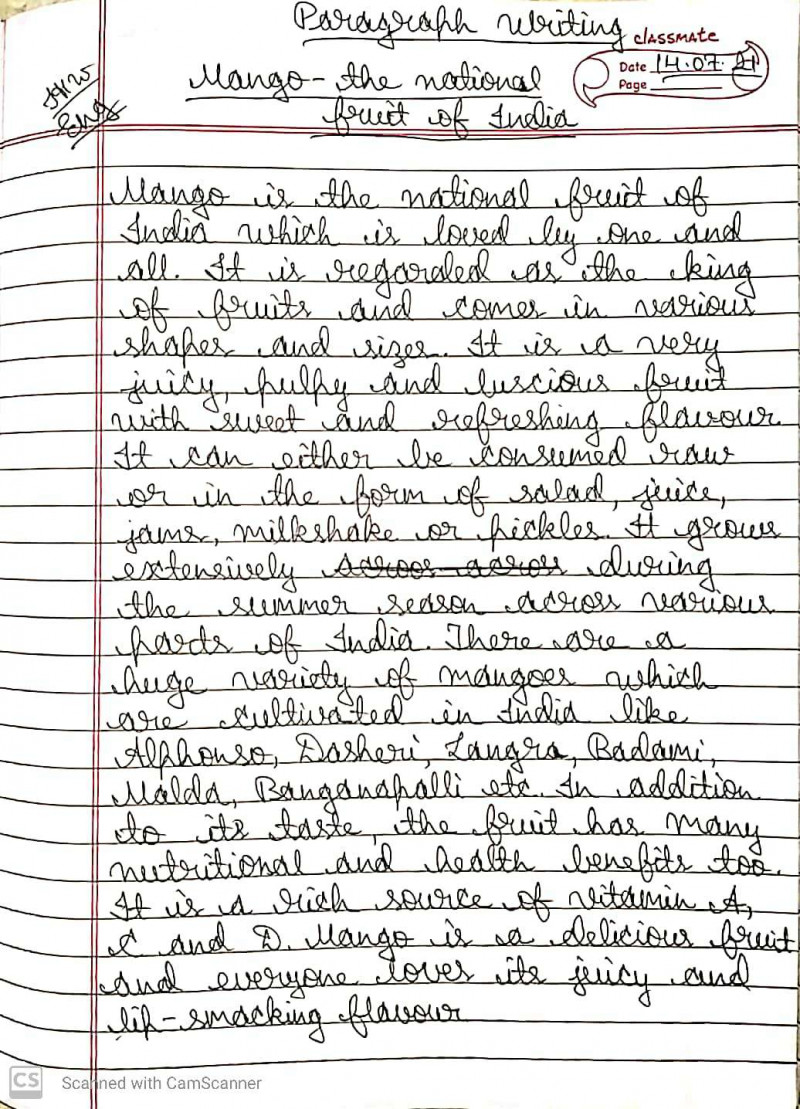 Paragraph Writing
classmate
Date 14.07.21
Page
H.W
Eng
Mango - the national
fruit of India
Mango is the national fruit of
India which is loved by one and
all. It is regarded as the king
of fruits and comes in various
shapes and sizes. It is a very
juicy, pulpy and luscious fruit
with sweet and refreshing flavour.
It can either be consumed raw
or in the form of salad, juice,
jams, milkshake or pickles. It grows
extensively across across during
the summer season across various
parts of India. There are a
huge variety of mangoes which
are cultivated in India like
Alphonso, Dasheri, Langra, Badami,
Malda, Banganapalli etc. In addition
to its taste, the fruit has many
nutritional and health benefits too.
It is a rich source of vitamin A,
C and D. Mango is a delicious fruit
and everyone loves its juicy and
lip-smacking flavour
CS Scanned with CamScanner